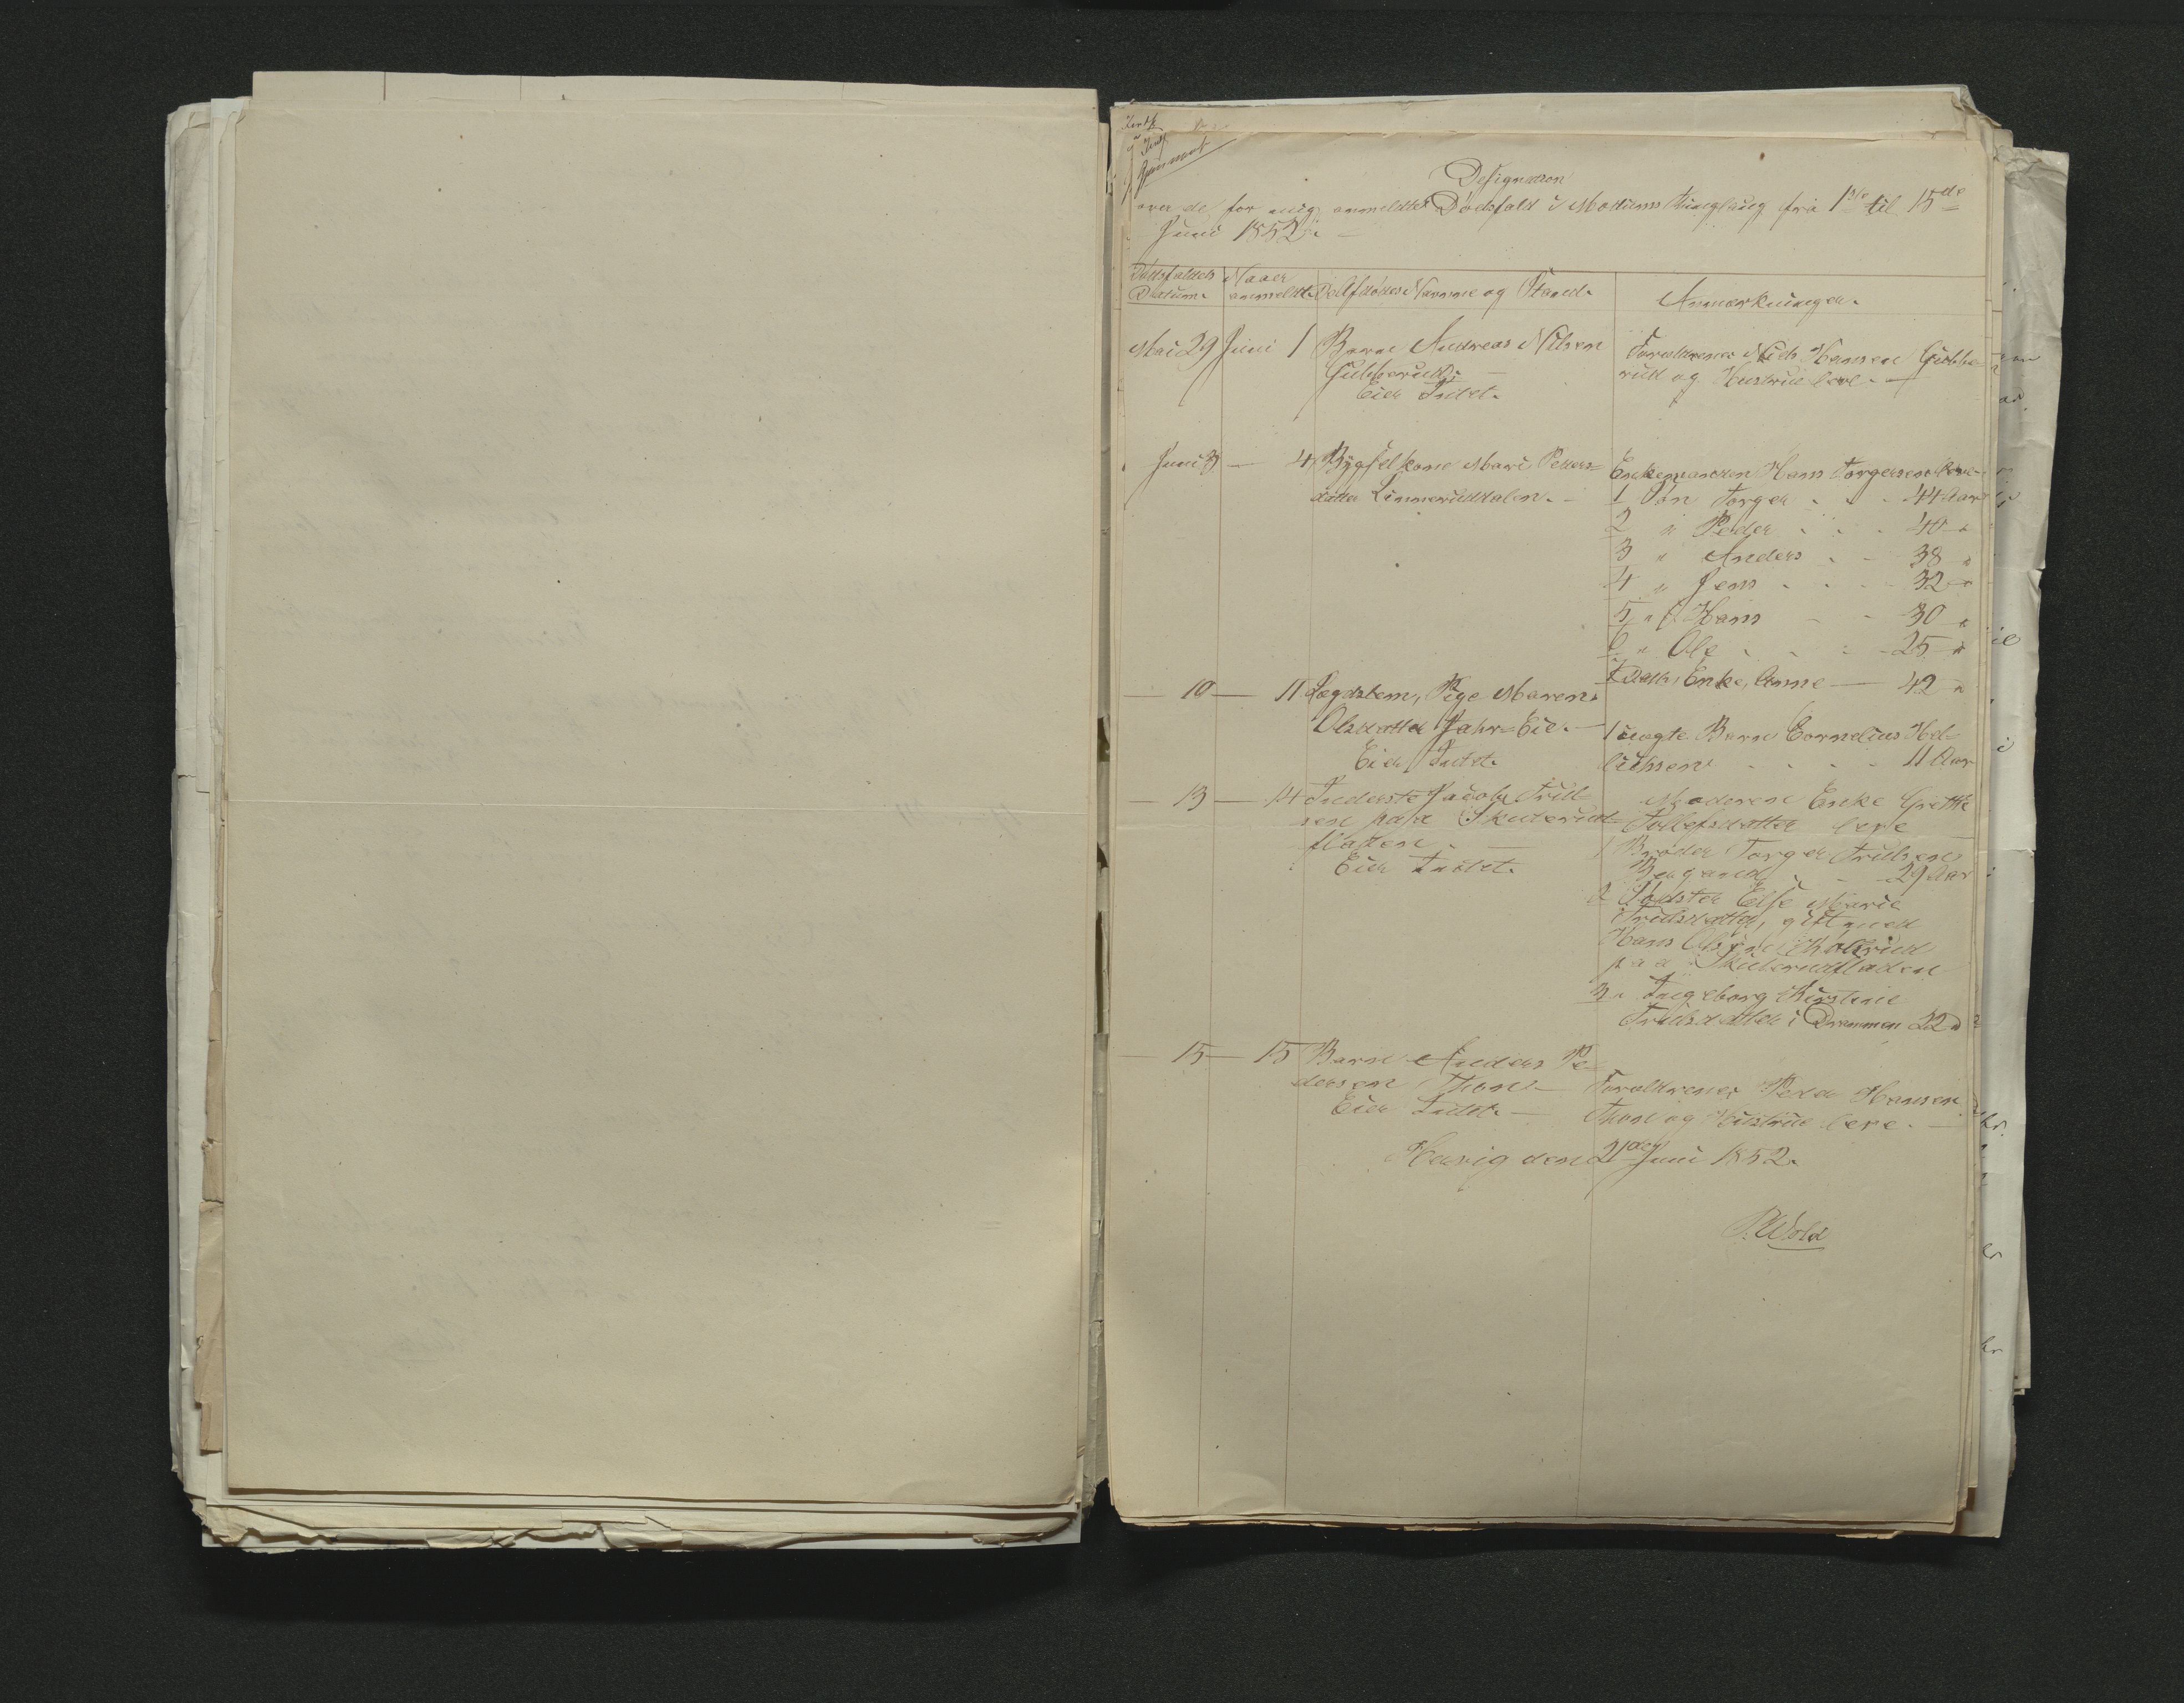 Designation
over de for mig anmeldte Dødsfald i Modums Thinglaug fra 1ste til 15de
Juni 1852.
Dødsfaldets Datum.
Naar anmeldt.
Den Afdødes Navne og Stand.
Anmærkninger.
Mai 29 Juni 1 Barn Andreas Nilsen
Gubberud.
Eier Intet.
Forældrene Niels Hansen Gubbe-
rud og Hustrue leve.
Juni 3 — 4 Bygselkone Mari Peders-
datter Linneruddalen.
Enkemanden Hans Torgersen
1 Søn Torger . . . 44 Aar
2 " Peder . . . 40 "
3 " Anders . - 38 "
4 " Jens . . . 32 "
5 " Hans - - 30 "
6 " Ole . . . 25 "
7 Datter, Enke, Anne — 42 "
— 10 — 11 Lægdslem, Pige Maren
Olsdatter Jahr-Eie.
Eier Intet.
1 uægte Barn Cornelius Hel-
. . . . 11 Aar
— 13 — 14 Inderste Jacob Trul-
sen paa Skuterud-
flaten.
Eier Intet.
Moderen Enke Grethe
Tollefsdatter leve
1 Broder Torger Trulsen
29 Aar
2 Søster Else Marie
Trulsdatter, gift med
Hans Olsen
paa Skuterudfladen
3 " Ingeborg Kirstine
Trulsdatter i Drammen 22 "
— 15 — 15 Barn Anders Pe-
dersen Thon
Eier Intet. —
Forældrene Peder Hansen
Thon og Hustrue leve. —
Hævig den 21de Juni 1852.
P. Wold